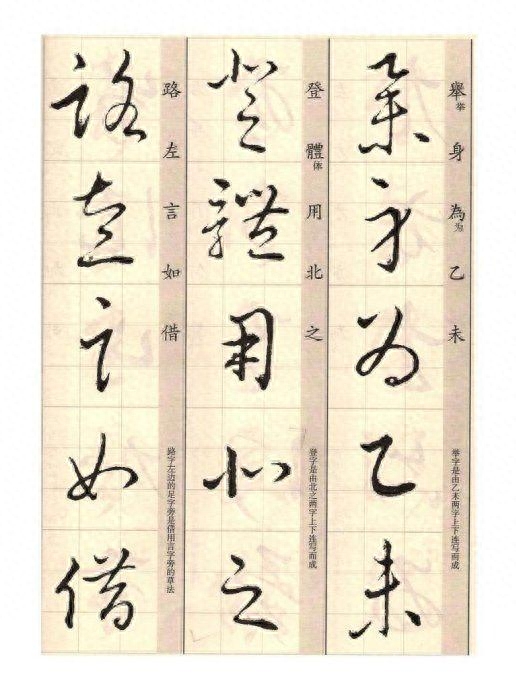 舉举身為为乙未
举字是由乙未两字上下连写而成
舉身為乙未
登體体用北之
登字是由北之两字上下连写而成
登體用北之
路左言如借
路字左边的足字旁是借用言字旁的草法
路左言如借